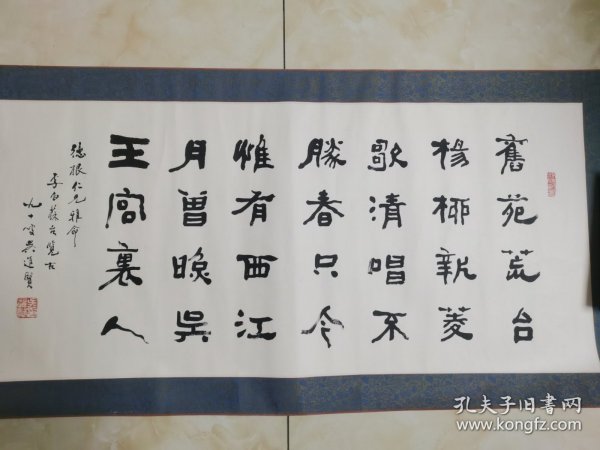 舊苑荒台
楊柳新菱
歌清唱不
勝春只今
惟有西江
月曾吳
王宮裏人
德根仁兄雅命
李白蘇台覽古
九十叟吳進賢
孔夫子旧书网
www.kongfz.com